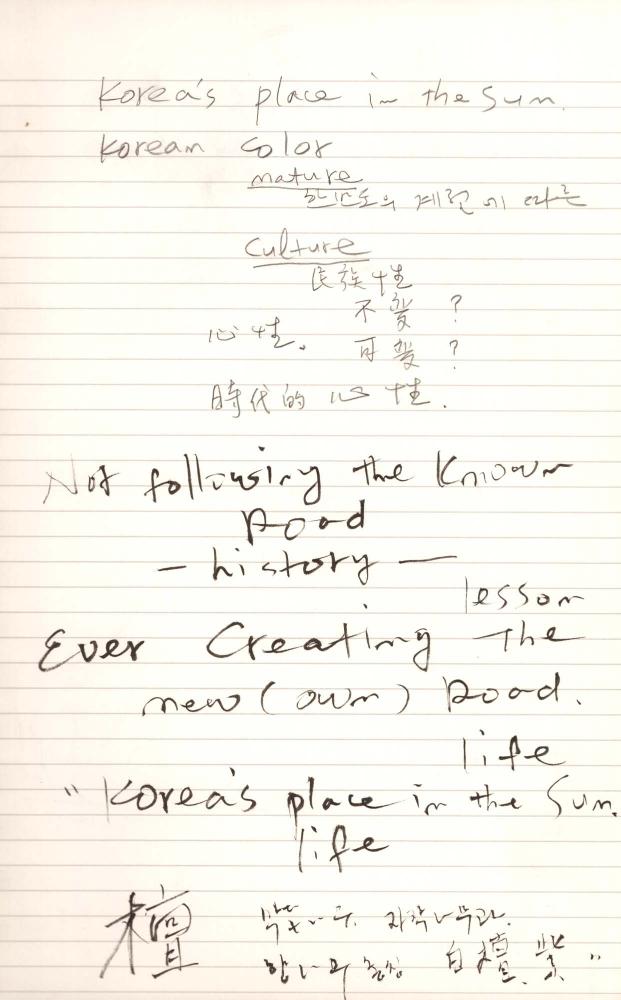 Korea's place in the Sun.
Korean Color
nature
한반도의 계절에 따른
Culture
民族性
不變 ?
心性. 可變 ?
時代的 心性.
Not following the Known
Road
- history -
lesson
Ever Creating The
new (own) Road.
life
" Korea's place in the Sun.
life
檀 박달나무. 자작나무과.
향나무 총칭 白檀. 紫 "